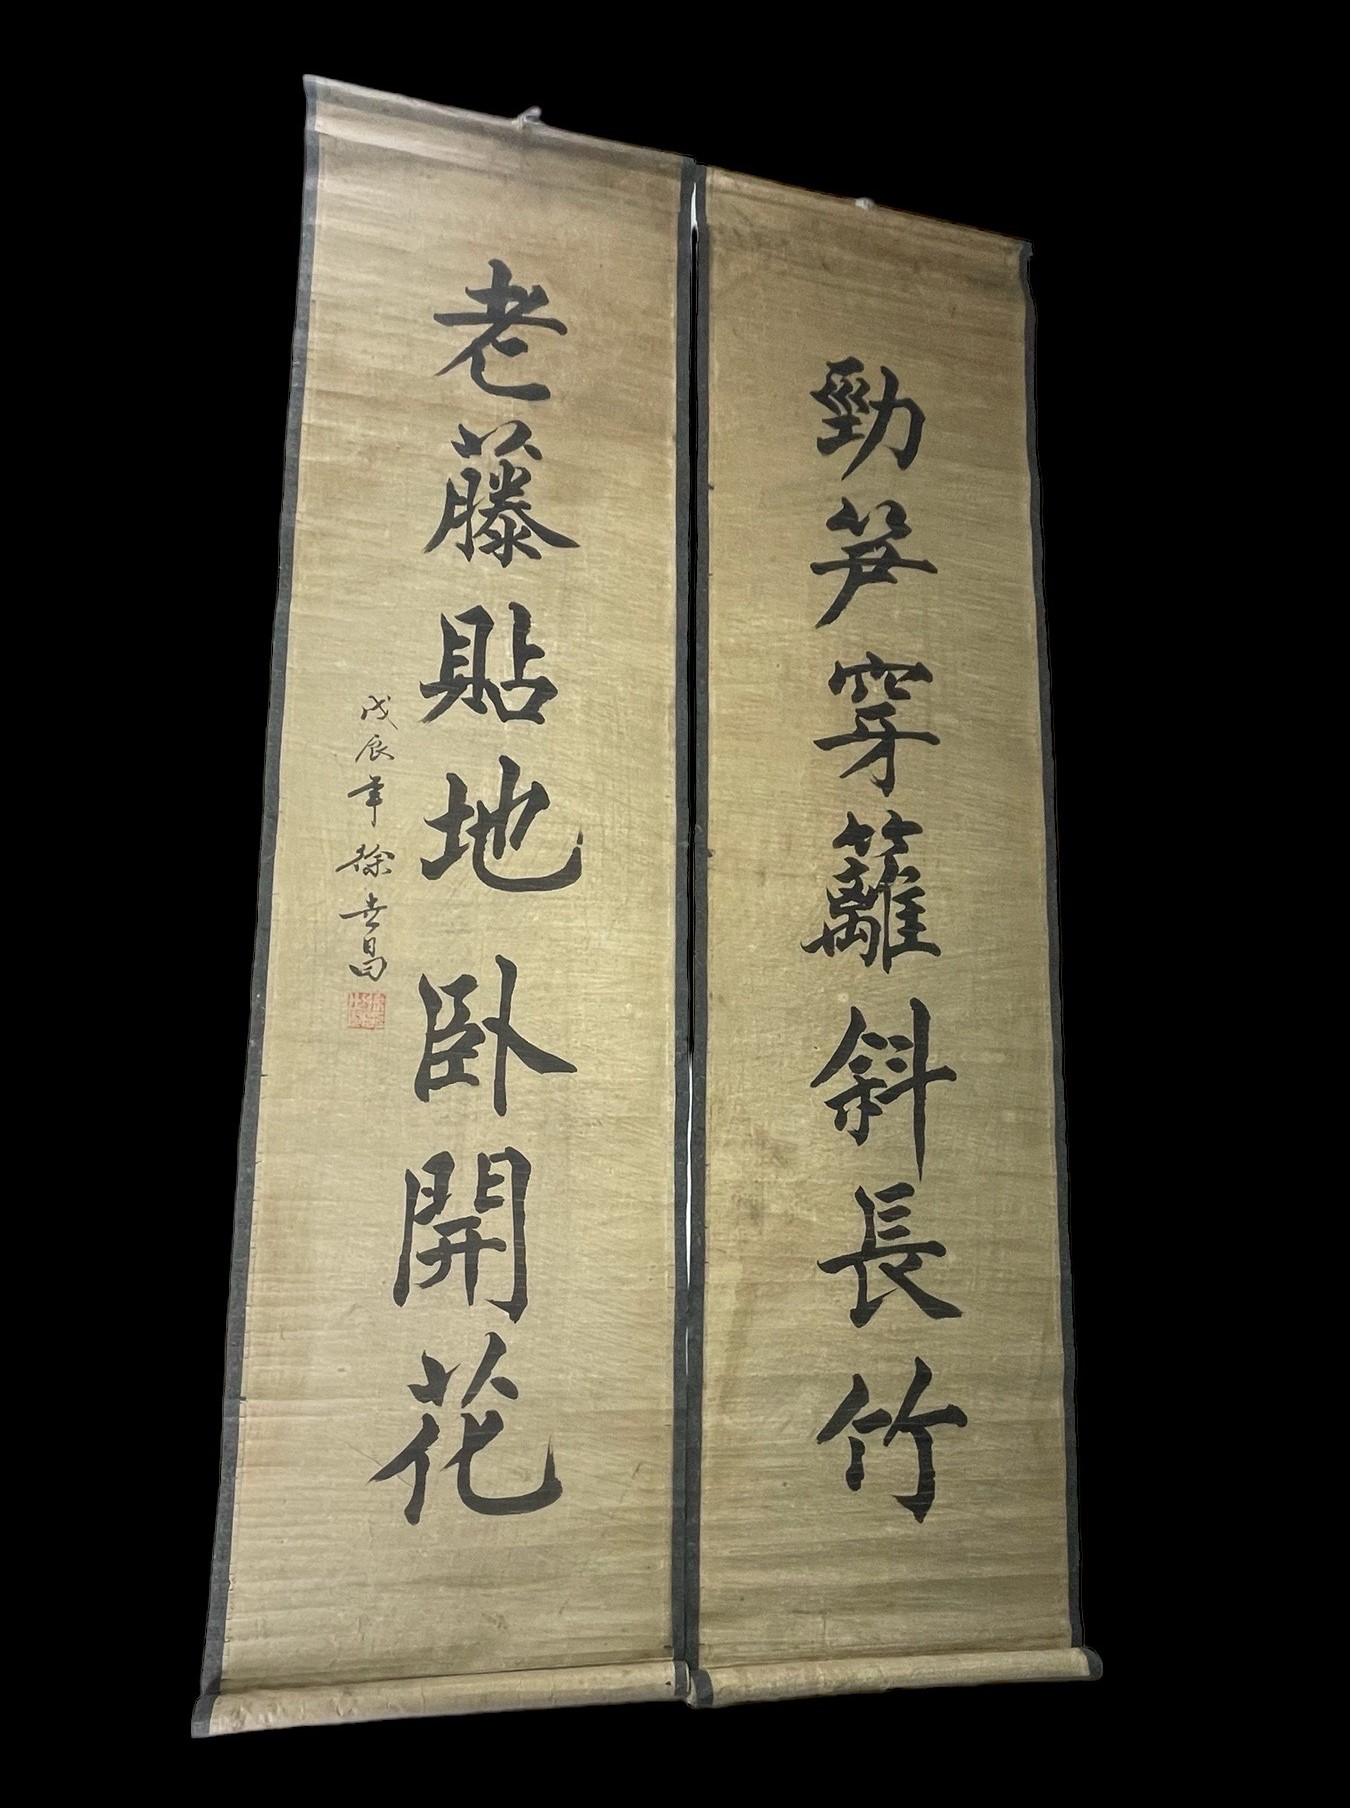 勁笋穿籬斜長竹
老藤貼地卧開花
戊辰年 徐世昌